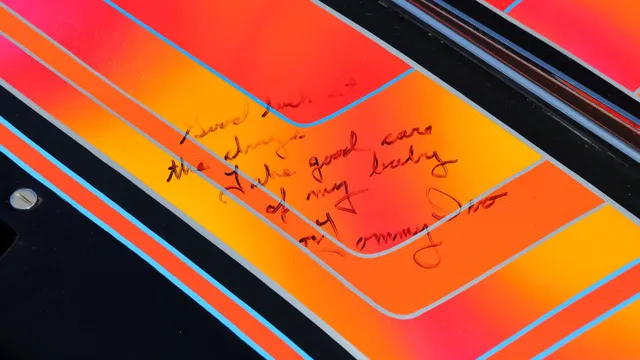 Good luck at
the drags
Take good care
of my baby
Tommy Ivo